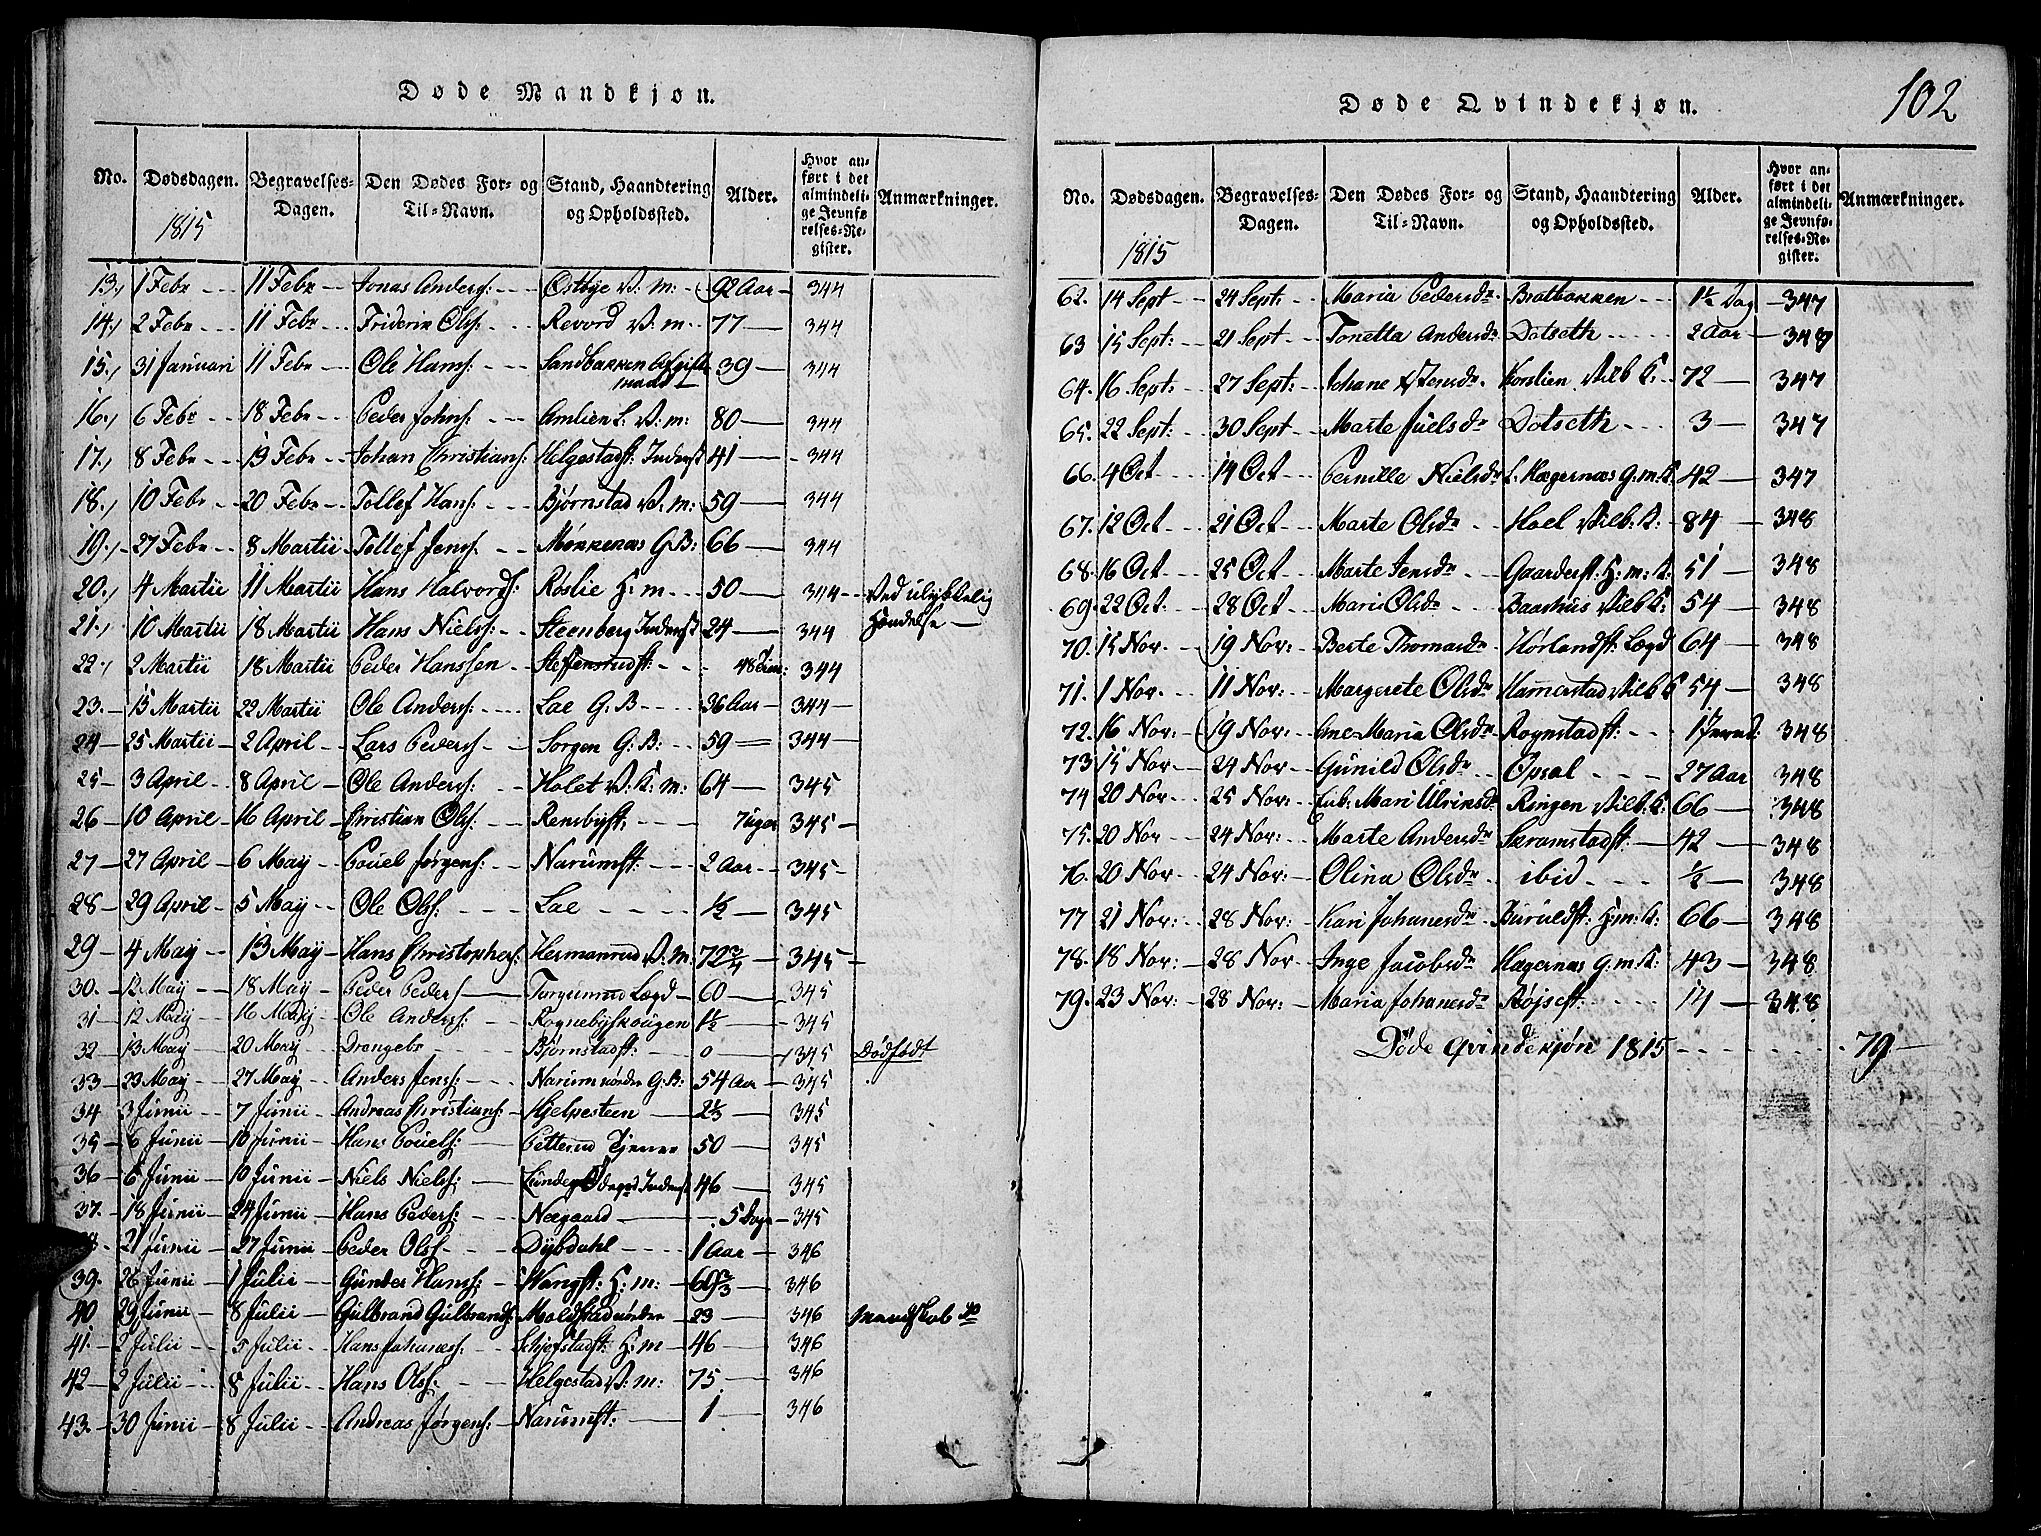 Døde Mandkjøn.
No. Dødsdagen. Begravelses-Dagen. Den Dødes For- og Til-Navn. Stand, Haandtering og Opholdssted. Alder. Hvor anført i det almindelige Jevnførelses-Register. Anmærkninger.
1815
13., 1 Febr 11 Febr Jonas Anders: Østbye V: m: 92 Aar 344
14., 2 Febr 11 Febr Friderik Ols: Revord V: m: 77 344
15., 31 Januari 11 Febr Ole Hans: Sandbakken 39 344
16., 6 Febr 18 Febr Peder Johns: Amlien L: V: m: 80 344
17., 8 Febr 19 Febr Johan Christians: Helgestadft: Inderst 41 344
18., 10 Febr 20 Febr Tollef Hans: Bjørnstad V: m: 59 344
19., 27 Febr 8 Martii Tollef Jens: Mønkenæs G.B: 66 344
20., 4 Martii 11 Martii Hans Halvords: Røslie H: m 50 344 Ved ulykkelig
21., 10 Martii 18 Martii Hans Niels: Steenberg Inderst 24 344 Hændelse
22., 2 Martii 18 Martii Peder Hanssen Steffensrudft: 48 344
23. 15 Martii 22 Martii Ole Anders: Lae G.B 36 Aar 344
24 25 Martii 2 April Lars Peders Sorgen G:B: 59 344
25 3 April 8 April Ole Anders: Holet V: K: m: 64 345
26 10 April 16 April Christian Ols: Rensbyft: 7 uger 345
27 27 April 6 May Pouel Jørgens: Narumft: 2 Aar 345
28 29 April 5 May Ole Ols: Lae 1/2 345
29 4 May 13 May Hans Christophers: Hermanrud V: m: 72 3/4 345
30. 12 May 18 May Peder Peders Lægd 60 345
31 12 May 16 May Ole Anders: Rognebyskougen 1½ 345
32 13 May 20 May Drengebr Bjørnstadft: 0 345 Dødfødt
33 23 May 27 May Anders Jens: Narum nordre G:B: 54 Aar 345
34 3 Junii 7 Junii Andreas Christians: Hjelpesteen 2⅓ 345
35 6 Junii 10 Junii Hans Pouels: Petterud Tjener 50 345
36 6 Junii 10 Junii Niels Niels: 46 345
37. 18 Junii 24 Junii Hans Peders: Næגaard 5 Dage 345
21 Junii 27 Junii Peder Ols: Dybdahl 1 Aar 346
39. 26 Junii 1 Julii Gunder Hans: Wangft: H: m: 69⅔ 346
40 29 Junii 8 Julii Gulbrand Gulbrands: Moldstad nordre 23 346
41. 2 Julii 5 Julii Hans Johanes: Schjefstadft: H: m 46 346
42 2 Julii 8 Julii Hans Ols: Helgestad V: m: 75 346
43. 30 Junii 8 Julii Andreas Jørgens: Narumft: 1 346
102
Døde Qvindekjøn.
No. Dødsdagen. Begravelses-Dagen. Den Dødes For- og Til-Navn. Stand, Haandtering og Opholdssted. Alder. Hvor anført i det almindelige Jevnførelses-Register. Anmærkninger.
1815
62. 14 Sept 24 Sept: Maria Pedersdr Bratbakken 1½ Dag 347
63 15 Sept: 21 Sept Tonetta Andersdr Dotseth 2 Aar 348
64. 16 Sept: 27 Sept: Johane Jensdr Korslien 72 347
65. 22 Sept: 30 Sept Marte Juelsdr Dotseth 3 347
66. 4 Oct 14 Oct Pernille Nielsdr L: Hægernæs G.m.K: 42 347
67. 12 Oct 21 Oct Marte Olsdr Hoel Vilb: K: 84 348
68. 16 Oct 25 Oct Marte Jensdr Gaarderft: H: m: K: 51 348
69. 22 Oct: 28 Oct Mari Olsdr Baashus Vilb K: 54 348
70. 15 Nov 19 Nov: Berte Thomasdr Hørlandft: Lægd 64 348
71. 1 Nov. 11 Nov: Margrete Olsdr Hammerstad Vilb K 54 348
72. 16 Nov: 19 Nov: Ane Maria Olsdr Rognstadft: 1 348
73 15 Nov: 24 Nov Gunild Olsdr Opsal 27 Aar 348
74 20 Nov 25 Nov: Mari Ulriksdr Ringen Vilb: K: 66 348
75. 20 Nov 24 Nov: Marte Andersdr Skramstadft: 42 348
76. 20 Nov 24 Nov: Olina Olsdr ibid 1/2 348
77 21 Nov: 28 Nov: Kari Johanesdr Buruldft: H: m: K: 66 348
78. 18 Nov: 28 Nov Inge Jacobsdr Hægernæs G: m K: 43 348
79. 23 Nov: 28 Nov: Maria Johanesdr Røjseft: 14 348
Døde Qvindekjøn 1815 79.